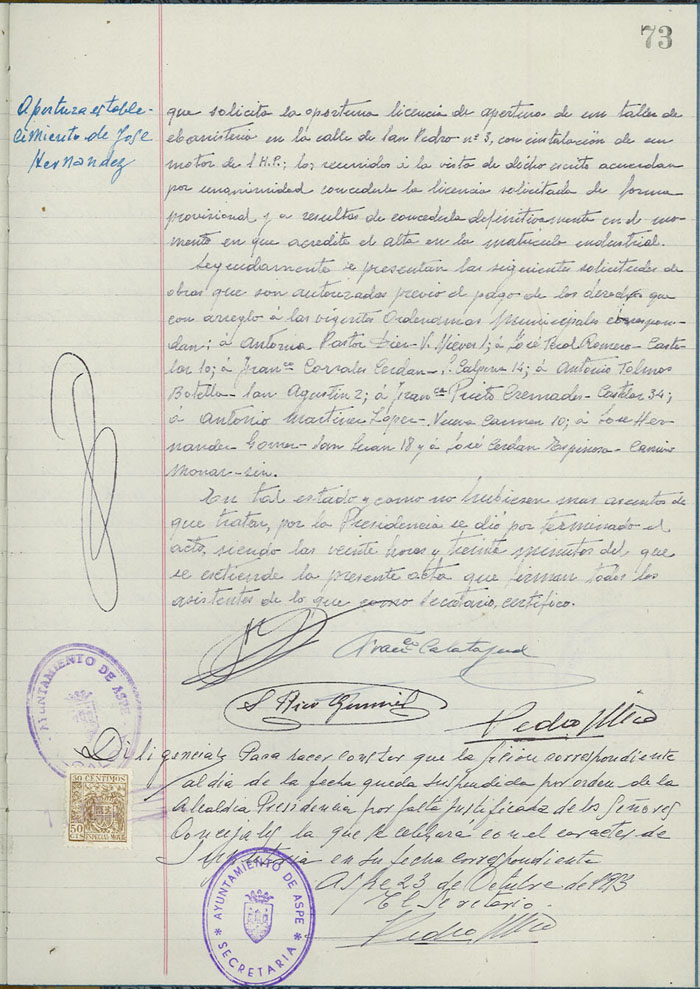 73
Apertura estable-
cimiento de Jose
Hernandez
que solicita la oportuna licencia de apertura de un taller de
ebanisteria en la calle de San Pedro nº 3, con instalación de un
motor de 1 H.P.; los reunidos á la vista de dicho escrito acuerdan
por unanimidad concederle la licencia solicitada de forma
provisional y a resultas de concederla definitivamente en el mo-
mento en que acredite el alta en la matricula industrial.
Seguidamente se presentan las siguientes solicitudes de
obras que son autorizadas previo el pago de los derechos que
con arreglo á las vigentes Ordenanzas Municipales correspon-
dan: á Antonio Pastor Dier- V. Nieves 1; á José Perol Romero- Caste-
lar 10; á Franco Corrales Cerdan- 14; á Antonio
Botella- San Agustin 2; á Franco Prieto Cremades- Castelar 34;
á Antonio Martinez López- Virgen Carmen 10; á José Her-
nandez Gomez- San Juan 18 y á José Cerdan Espinosa- Camino
Monar- sin.
En tal estado y como no hubiesen mas asuntos de
que tratar, por la Presidencia se dió por terminado el
acto, siendo las veinte horas y treinta minutos del que
se extiende la presente acta que firman todos los
asistentes de lo que como Secretario, certifico.
Franco Calatayud
Pedro Mico
AYUNTAMIENTO DE ASPE
Diligencia: Para hacer constar que la sesion correspondiente
al dia de la fecha queda suspendida por orden de la
Alcaldia Presidencia por falta justificada de los Señores
Concejales la que se celebrará con el caracter de
Supletoria en su fecha correspondiente
Aspe 23 de Octubre de 1953
El Secretario.
Pedro Mico
50 CENTIMOS
50 CTS
ESPECIAL MOVIL
* AYUNTAMIENTO DE ASPE *
SECRETARIA